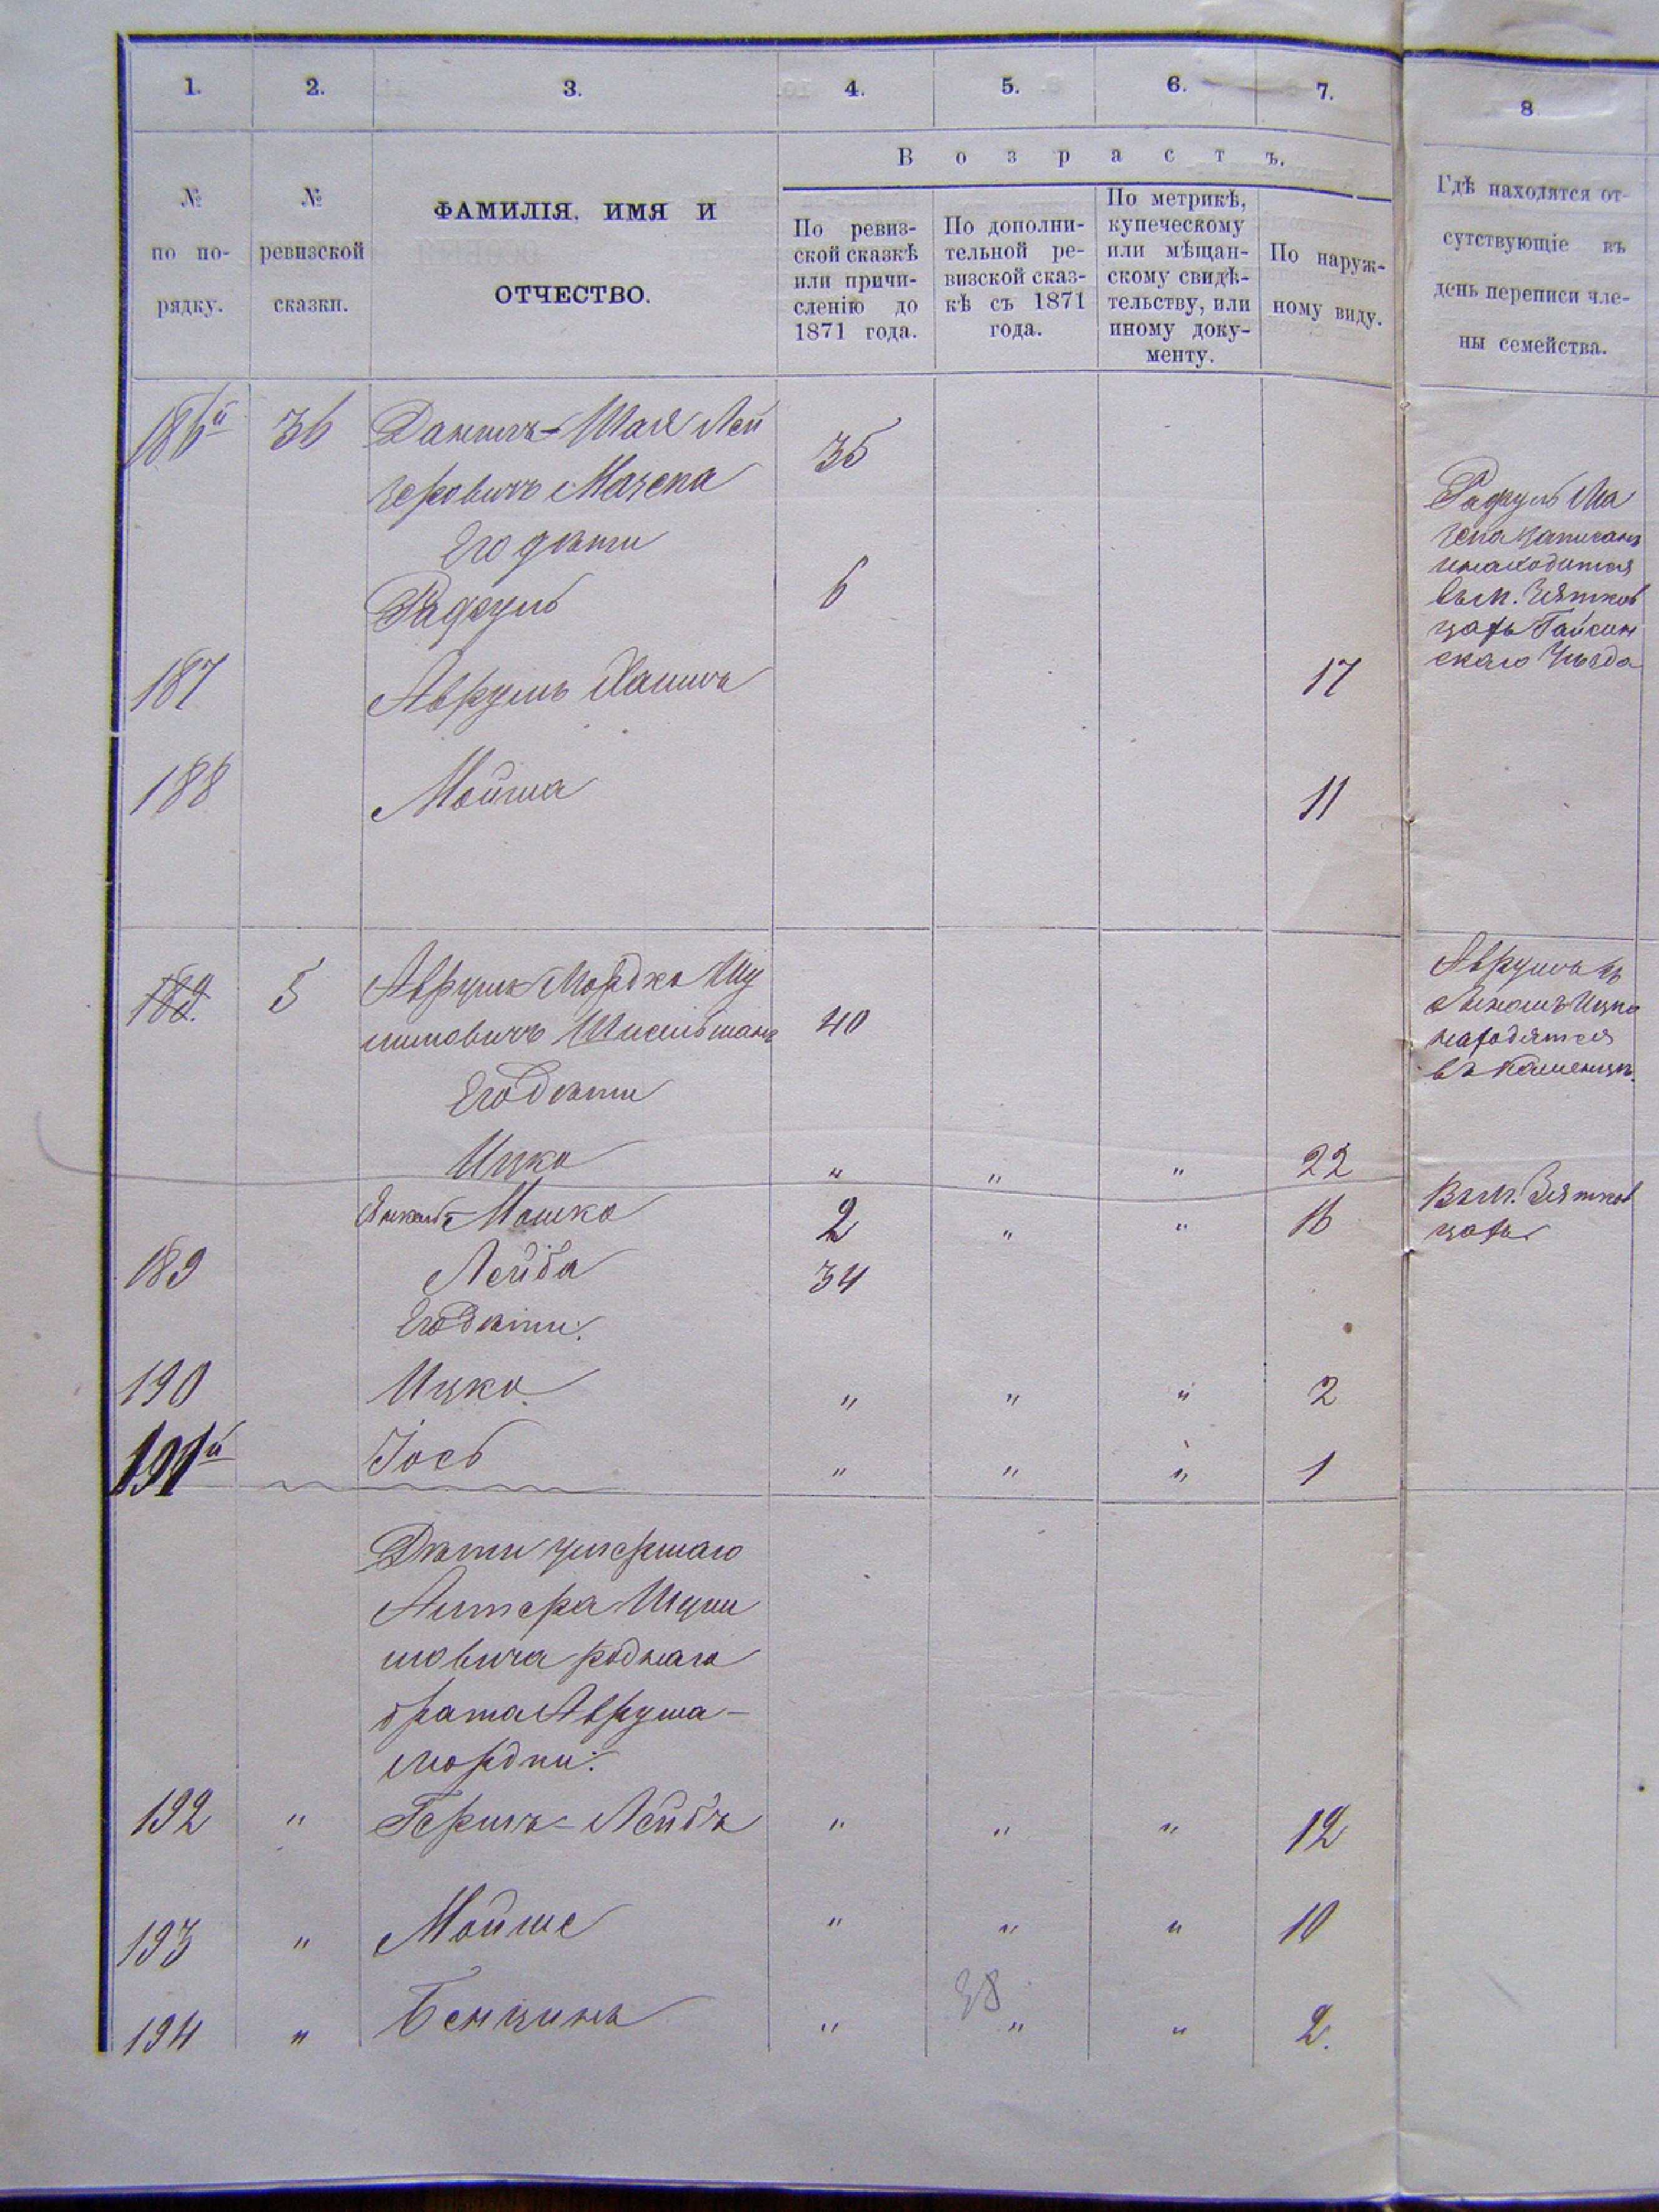 1. 2. 3. 4. 5. 6. 7. 8
Возрастъ.
№ по порядку.
№ ревизской сказки.
ФАМИЛІЯ, ИМЯ И
ОТЧЕСТВО.
По ревиз-
ской сказкѣ
или причи-
сленію до
1871 года.
По дополни-
тельной ре-
визской сказ-
кѣ съ 1871
года.
По метрикѣ,
купеческому
или мѣщан-
скому свидѣ-
тельству, или
иному доку-
менту.
По наруж-
ному виду.
Гдѣ находятся от-
сутствующіе въ
день переписи чле-
ны семейства.
186й 36 Данилъ-Шая Лей
зеровичъ Мазепа 35
Его дѣти
Рафуль 6
Рафуль Ма
зепа записанъ
и находится
въ м. Зятков
цахъ Гайсин
скаго Уѣзда
187 Аврумъ 17
188 Мойша 11
189. 5 Аврумъ Мордко Шу
лимовичъ 40
Его дѣти
Аврумъ съ
сыномъ Ицко
находятся
въ Каменцѣ.
Ицко " " " 22
Янкель-Мошко 2 " " 16
Въ м. Зятков
цахъ
189 Лейба 34
Его дѣти.
190 Ицко. " " " 2
191й Іось " " " 1
Дѣти умершаго
Алтера Шули
мовича роднаго
брата Аврума-
Мордки.
192 " Гершъ-Лейбъ " " " 12
193 " Мойше " " " 10
38
194 " Бенционъ " " " 2.